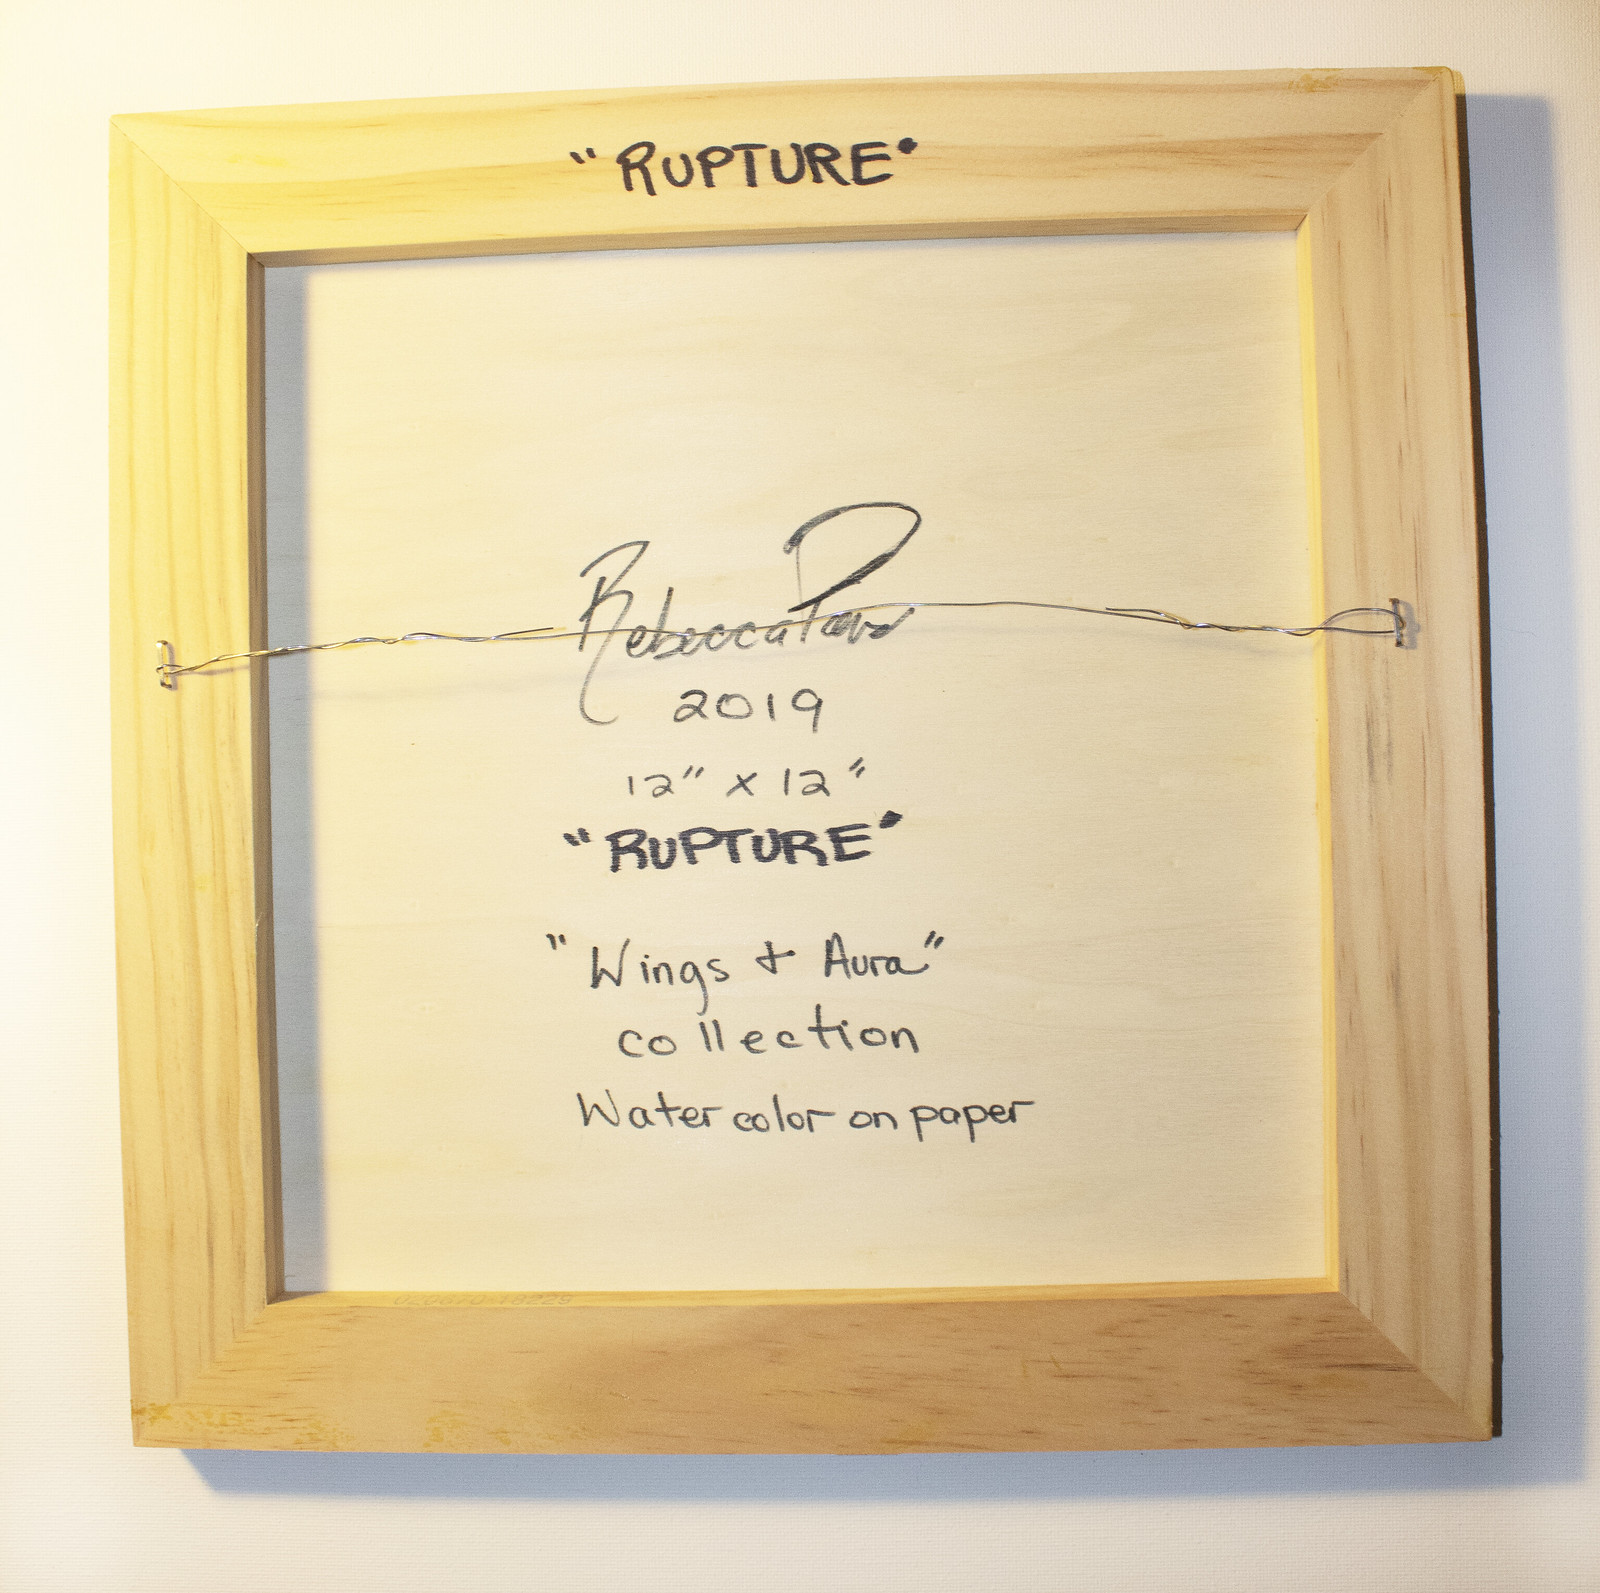 "RUPTURE"
Rebecca
2019
12" x 12"
"RUPTURE"
"Wings + Aura"
collection
Watercolor on paper